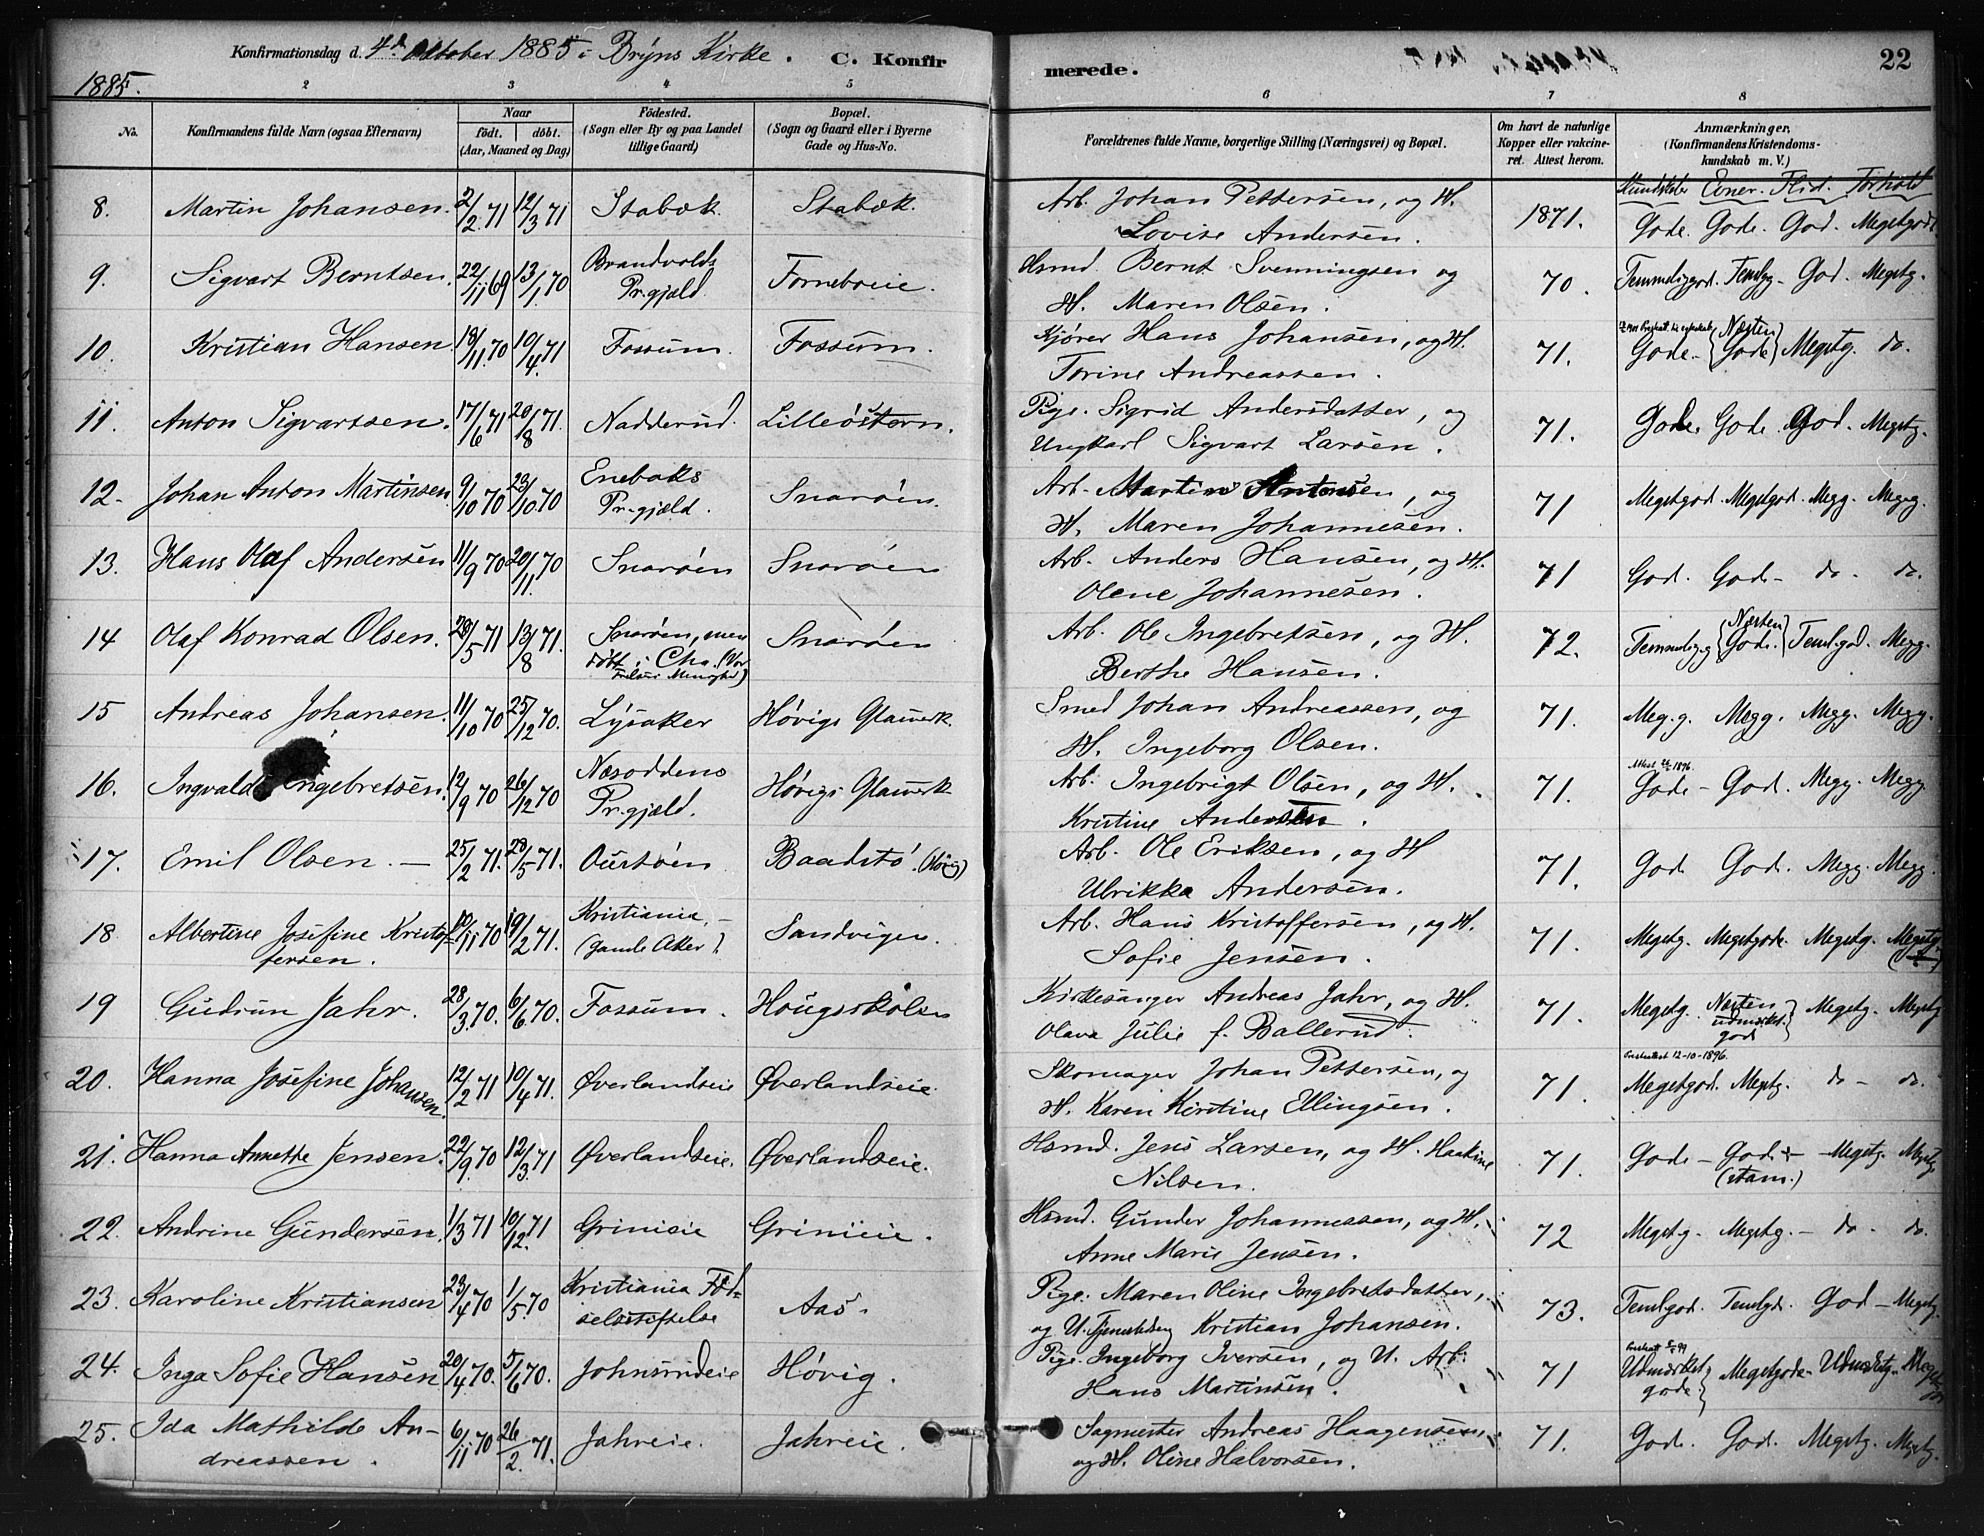 Konfirmationsdag d. 4de Oktober 1885 i Bryns Kirke. C. Konfirmerede. 22
1885.
2 3 4 5 6 7 8
No. Konfirmandens fulde Navn (ogsaa Efternavn) Naar født. døbt. (Aar, Maaned og Dag) Fødested. (Sogn eller By og paa Landet tillige Gaard) Bopæl. (Sogn og Gaard eller i Byerne Gade og Hus-No.
Forældrenes fulde Navne, borgerlige Stilling (Næringsvei) og Bopæl. Om havt de naturlige Kopper eller vakcineret. Attest herom. Anmærkninger. (Konfirmandens Kristendomskundskab m. V.)
Kundskaber Evner. Flid. Forhold
8. Martin Johansen. 2/2 71 12/3 71 Stabæk. Stabæk. Arb. Johan Pettersen, og H. Lovise Andersen. 1871. Gode. Gode. God. Megetgodt.
9. Sigvart Berntsen. 22/11 69 13/1 70 Brandvolds Pr.gjæld Forneboeie. Hsmd. Bernt Svenningsen og H. Maren Olsen. 70. Temmeliggod. Temlg. God. Megetg.
10. Kristian Hansen. 18/11 70 10/4 71 Fossum. Fossum. Kjører Hans Johansen, og H. Torine Andreassen. 71. Gode. {Næsten Gode} Megetg. do.
11. Anton Sigvartsen. 17/6 71 20/8 71. Nadderud. Lilleøstern. Pige. Sigrid Andersdatter, og Ungkarl Sigvart Larsen. 71. Gode. Gode. God. Megetg.
12. Johan Anton Martinsen 9/10 70 23/10 70 Enebaks Pr.gjæld. Snarøen. Arb. Martin Antonsen, og H. Maren Johannesen. 71 Megetgod. Megetgod. Megg. Megg.
13. Hans Olaf Andersen 11/9 70 20/11 70 Snarøen Snarøen Arb. Anders Hansen, og H. Olene Johannesen. 71 God. God. do. do.
14 Olaf Konrad Olsen. 29/5 71 13/8 71. Snarøen, men døbt i Cha. (Vor Frelsers Menighed) Snarøen Arb. Ole Ingebretsen, og H. Berthe Hansen. 72. Temmelig g {Næsten Gode.} Temlgod. Megg.
15 Andreas Johansen. 11/10 70 25/12 70. Lysaker Høvigs Glasverk Smed Johan Andreassen, og H. Ingeborg Olsen. 71. Meg.g. Megg. Megg. Megg.
16. Ingvald Ingebretsen. 12/9 70 26/12 70 Næsoddens Pr.gjæld. Høvigs Glasverk Arb. Ingebrigt Olsen, og H. Kristine Andersen. 71. Gode - God. Megg. Megg.
17. Emil Olsen. 25/2 71. 28/5 71. Oustøen Baadstø. (Høvig) Arb. Ole Eriksen, og H Ulrikka Andersen. 71. God God. Megg. Megg.
18 Albertine Josefine Kristoffersen. 10/11 70 19/2 71. Kristiania. (Gamle Aker). Sandvigen. Arb. Hans Kristoffersen, og H. Sofie Jensen. 71. Megetg. Megetgode. Megetg. Megetg.
19 Gudrun Jahr. 28/3 70. 6/6 70. Fossum. Hougsskolen Kirkesanger Andreas Jahr, og H. Olava Julie f. Ballerud. 71. Megetg. Næsten udmærket god} Megetg. Megetg
20. Hanna Josefine Johansen. 12/2 71 10/4 71. Øverlandseie Øverlandseie. Skomager Johan Pettersen, og H. Karen Kirstine Ellingsen. 71. Presteattest 12-10-1896. Megetgod. Megetg. do - do.
21. Hanna Annette Jensen. 22/9 70 12/3 71 Øverlandseie. Øverlandseie. Hsmd. Jens Larsen, og H. Haakine Nilsen. 71. Gode - Gode (stam.) - Megetg. Megetg
22. Andrine Gundersen. 1/3 71 10/12 71 Grinieie Grinieie. Hsmd. Gunder Johannessen, og H. Anne Marie Jensen. 72 Megetg. Megetg. - do. do.
23. Karoline Kristiansen 23/4 70 1/5 70 Kristiania Fødselsstiftelse Aas. Pige. Maren Oline Ingebretsdatter, og U. Tjenestedreng Kristian Johansen. 73. Temlgod. Temlgd. God - Megetg.
24. Inga Sofie Hansen 20/4 70. 5/6 70. Johnsrudeie Høvig. Pige. Ingeborg Iversen, og U. Arb. Hans Martinsen. 71 Udmærket gode} Megetgode Udmærketg.
25. Ida Mathilde Andreassen. 6/11 70 26/2 71. Jahreie. Jahreie. Sagmester Andreas Haagensen, og H. Oline Halvorsen. 71. God. God. Megetg. Megetg.